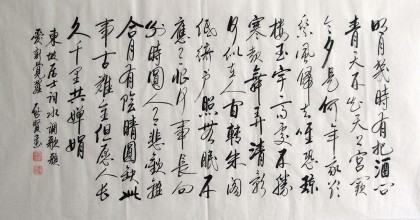 明月幾時有把酒问
青天不知天上宫阙
今夕是何年我欲
乘風歸去唯恐瓊
樓玉宇高處不勝
寒起舞弄清影
何似在人间转朱阁
低绮户照無眠不
應有恨何事長向
别時圆人有悲歡離
合月有陰晴圆缺此
事古難全但愿人長
久千里共嬋娟
東坡居士词水調歌頭
愛新覺羅